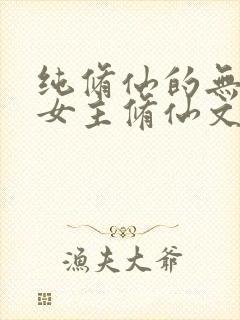 纯脩仙的無
女主脩仙文
漁夫大爺